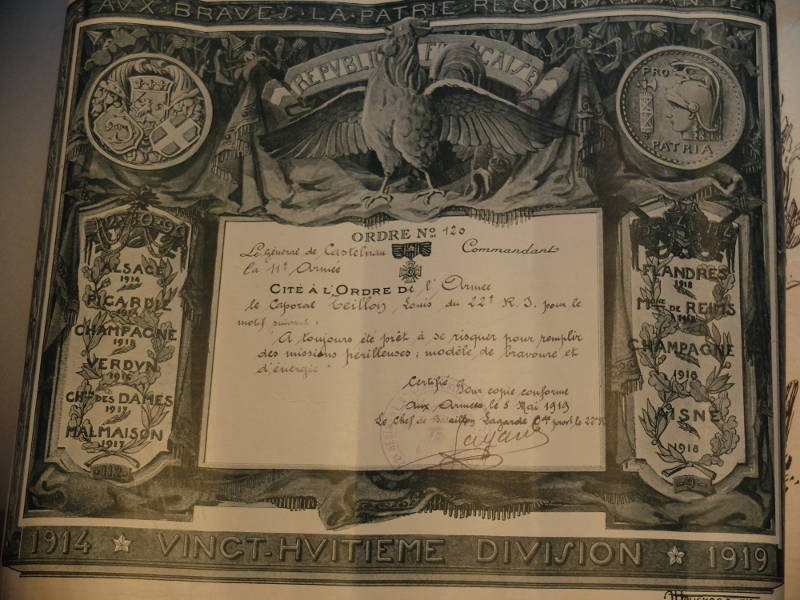 AVX·BRAVES·LA·PATRIE·RECONNAISSANTE
REPVBLIQVE FRANÇAISE
PRO
PATRIA
22·30·99
ALSACE
1914
PICARDIE
1914
CHAMPAGNE
1915
VERDVN
1916
CHIN DES DAMES
1917
MALMAISON
1917
112
ORDRE No 120
Le Général de Castelnau Commandant
la 11e Armée
CITÉ À L'ORDRE De l'Armée
le Caporal Teillon Louis du 22e R.I. pour le
motif suivant :
A toujours été prêt à se risquer pour remplir
des missions périlleuses ; modèle de bravoure et
d'énergie "
Certifié Pour copie conforme
Aux Armées le 5 Mai 1919
Le Chef de Bataillon Lagarde Ct provt le 22e R
FLANDRES
1918
Mgne DE REIMS
1918
CHAMPAGNE
1918
AISNE
1918
1914 VINGT-HVITIEME DIVISION 1919